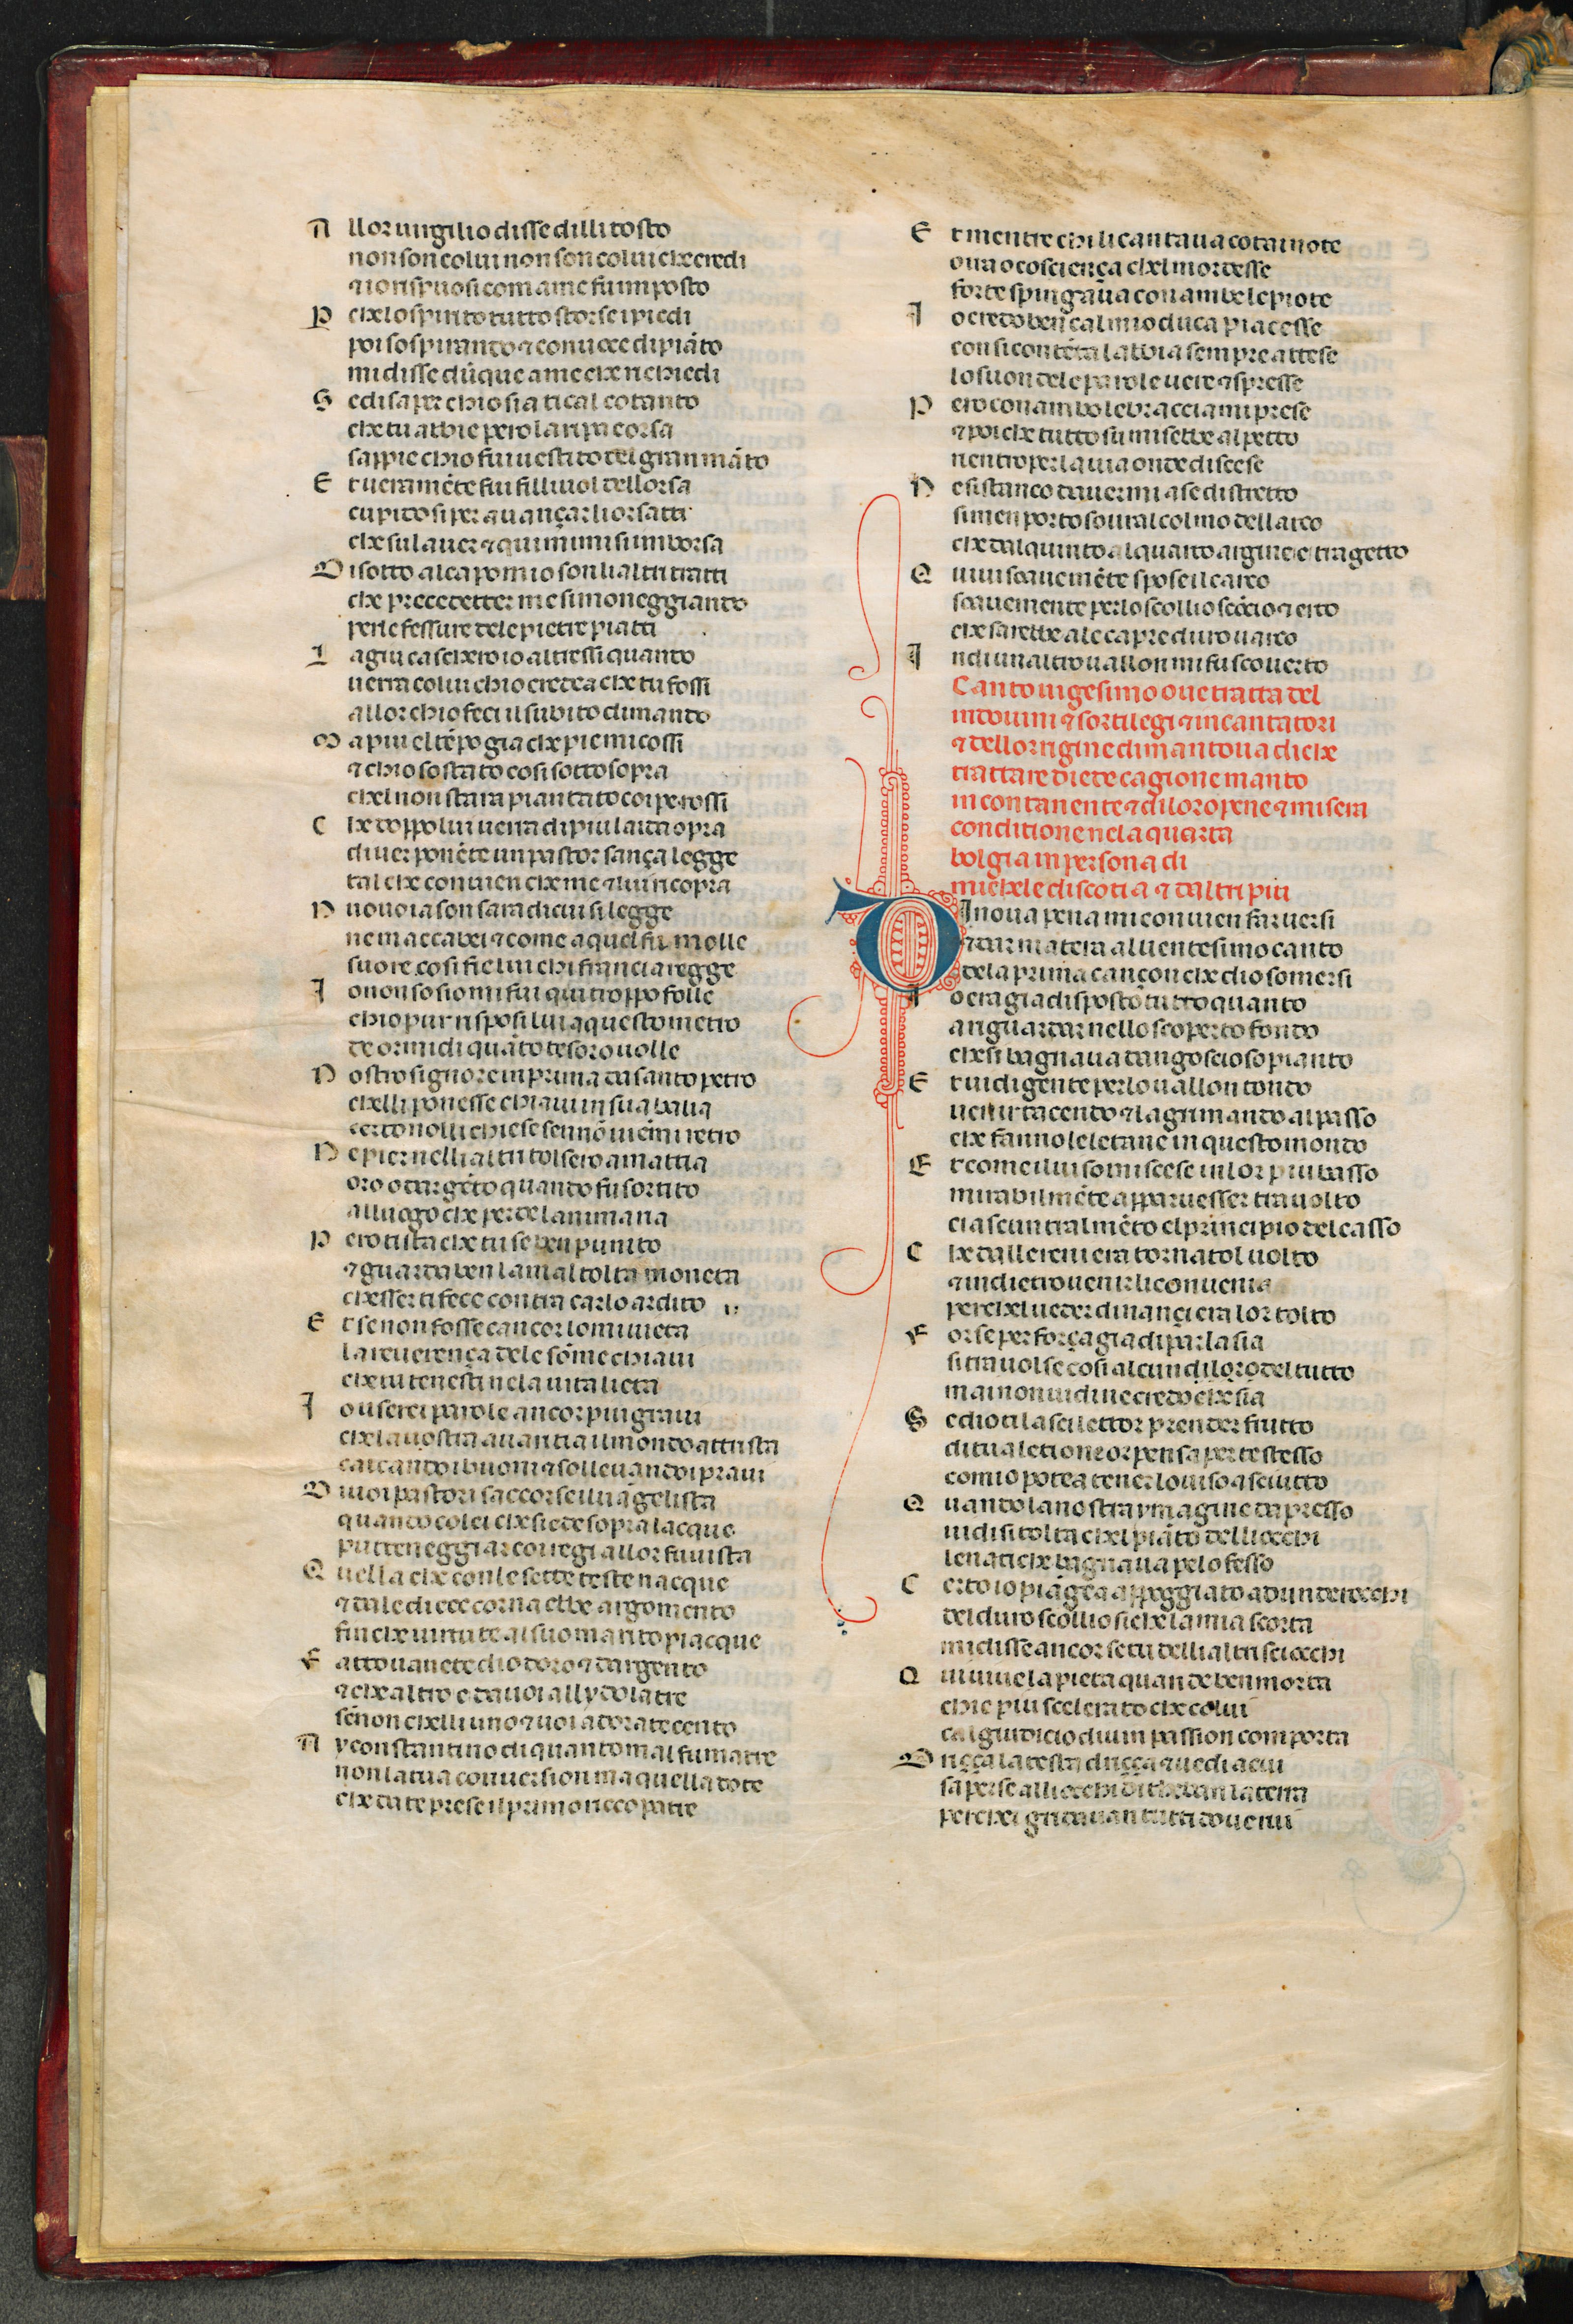 A llor uirgilio disse dilli tosto
non son colui non son colui che credi
⁊ io rispuosi com a me fu imposto
P che lo spirito tutto storse i piedi
poi sospirando ⁊ con uoce di piāto
mi disse dūque a me che richiedi
S e di saper chio sia ti cal cotanto
che tu abbie pero la ripa corsa
sappie chio fui uestito del gran māto
E t ueramēte fui filliuol dellorsa
cupido si per auançar li orsatti
che su lauer ⁊ qui mi misi in borsa
D i sotto al capo mio son li altri tratti
che precedetter me simoneggiando
per le fessure dele pietre piatti
L a giu cascherò io altressi quando
uerra colui chio credea che tu fossi
allor chio feci il subito dimando
M a piu el tēpo gia che pie mi cossi
⁊ chio so stato cosi sottosopra
chel non stara piantato coi pe rossi
C he doppo lui uerra di piu laida opra
di uer ponēte un pastor sança legge
tal che conuien che me ⁊ lui ricopra
N uouo iason sara di cui si legge
ne maccabei ⁊ come a quel fu molle
suo re cosi fie lui chi francia regge
I o non so sio mi fui qui troppo folle
chio pur risposi lui a questo metro
de or mi di quāto tesoro uolle
N ostro signore in prima da santo petro
chelli ponesse chiaui in sua balia
certo nolli chiese se nnō uiēmi retro
N e pier nelli altri tolsero a mattia
oro o dargēto quando fu sortito
al luogo che perde lanima ria
P ero ti sta che tu se ben punito
⁊ guarda ben la mal tolta moneta
chesser ti fece contra carlo ardito
E t se non fosse cancor lo mi uieta
la reuerença dele sōme chiaui
che tu tenesti nela uita lieta
I o userei parole ancor piu graui
che la uostra auaritia il mondo attrista
calcando i buoni ⁊ solleuando i praui
D i uoi pastori saccorse il uāgelista
quando colei che siede sopra lacque
putteneggiar co i regi a llor fu uista
Q uella che con le sette teste nacque
⁊ dale diece corna ebbe argomento
fin che uirtute al suo marito piacque
F atto uauete dio doro ⁊ dargento
⁊ che altro e da uoi all ydolatre
se nōn chelli uno ⁊ uoi adorate cento
A y constantino di quanto mal fu matre
non la tua conuersion ma quella dote
che da te prese il primo ricco patre
E t mentre chi li cantaua cotai note
o ira o cosciença chel mordesse
forte spingaua con ambe le piote
I o credo ben cal mio duca piacesse
con si contēta labbia sempre attese
lo suon dele parole uere ⁊spresse
P ero con ambo le braccia mi prese
⁊ poi che tutto su mi sebbe al petto
rientro per la uia onde discese
N e si stanco dauermi a se distretto
si men porto soural colmo dellarco
che dal quinto al quarto argine e tragetto
Q uiui soauemēte spose il carco
soauemente per lo scollio scōcio ⁊ erto
che sarebbe ale capre duro uarco
I ndi un altro uallon mi fu scouerto
Canto uigesimo oue tratta del
indouini ⁊ sortilegi ⁊ incantatori
⁊ dell origine di mantoua di che
trattare diede cagione manto
incontanente ⁊ di loro pene ⁊ misera
conditione nela quarta
bolgia in persona di
michele di scotia ⁊ daltri piu
D I noua pena mi conuien far uersi
⁊ dar matera al uentesimo canto
dela prima cançon che dio somersi
I o era gia disposto tutto quanto
a riguardar nello scoperto fondo
che si bagnaua dangoscioso pianto
E t uidi gente per lo uallon tondo
uenir tacendo ⁊ lagrimando al passo
che fanno le letane in questo mondo
E t come il uiso mi scese in lor piu basso
mirabilmēte apparue esser trauolto
ciascun tral mēto el principio del casso
C he dalle reni era tornatol uolto
⁊ indietro uenir li conuenia
perchel ueder dinançi era lor tolto
F orse per força gia di parlasia
si trauolse cosi alcun di loro del tutto
ma io non uidi ne credo che sia
S e dio ti lasci lettor prender frutto
di tua letione or pensa per te stesso
com io potea tener lo uiso asciutto
Q uando la nostra ymagine da presso
uidi si tolta chel piāto delli occhi
le natiche bagnaua pelo fesso
C erto io piāgea appoggiato ad un de rocchi
del duro scollio si che la mia scorta
mi disse ancor se tu delli altri sciocchi
Q ui uiue la pieta quande ben morta
chi e piu scelerato che colui
cal giudicio diuin passion comporta
D riçça la testa driçça ⁊ uedi a cui
saperse alli occhi di theban la terra
perchei gridauan tutti doue rui